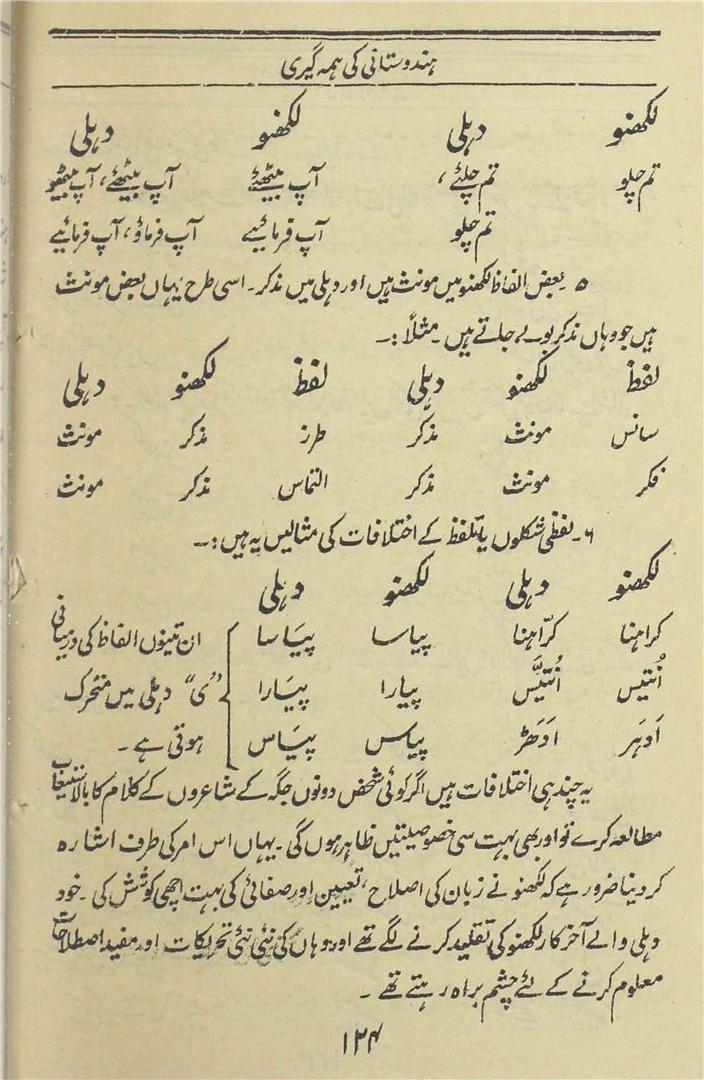 ہندوستانی کی ہمہ گیری
لکھنو دہلی لکھنو دہلی
تم چلو تم چلئے، آپ بیٹھیے آپ بیٹھئے، آپ بیٹھیو
تم چلو آپ فرمائیے آپ فرماؤ، آپ فرمائیے
۵ ۔ بعض الفاظ لکھنو میں مونث ہیں اور دہلی میں مذکر۔ اسی طرح یہاں بعض مونث
ہیں جو وہاں مذکر بولے جاتے ہیں ۔ مثلاً :۔
لفظ لکھنو دہلی لفظ لکھنو دہلی
سانس مونث مذکر طرز مذکر مونث
فکر مونث مذکر التماس مذکر مونث
۶۔ لفظی شکلوں یا تلفظ کے اختلافات کی مثالیں یہ ہیں :۔
لکھنو دہلی لکھنو دہلی
کراہنا کرّاہنا پیاسا پیَاسا ان تینوں الفاظ کی درمیانی
اُنتیس اُنتیَّس پیارا پیَارا ”ی“ دہلی میں متحرک
اَدہَر ادَھَڑ پیاس پیَاس ہوتی ہے ۔
یہ چند ہی اختلافات ہیں اگر کوئی شخص دونوں جگہ کے شاعروں کے کلام کا بالاستیعاب
مطالعہ کرے تو اور بھی بہت سی خصوصیتیں ظاہر ہوں گی ۔ یہاں اس امر کی طرف اشارہ
کر دینا ضرور ہے کہ لکھنو نے زبان کی اصلاح ، تعیین اور صفائی کی بہت اچھی کوشش کی ۔ خود
دہلی والے آخر کار لکھنو کی تقلید کرنے لگے تھے اور وہاں کی نئی نئی تحریکات اور مفید اصطلاحات
معلوم کرنے کے لئے چشم براہ رہتے تھے ۔
۱۲۴